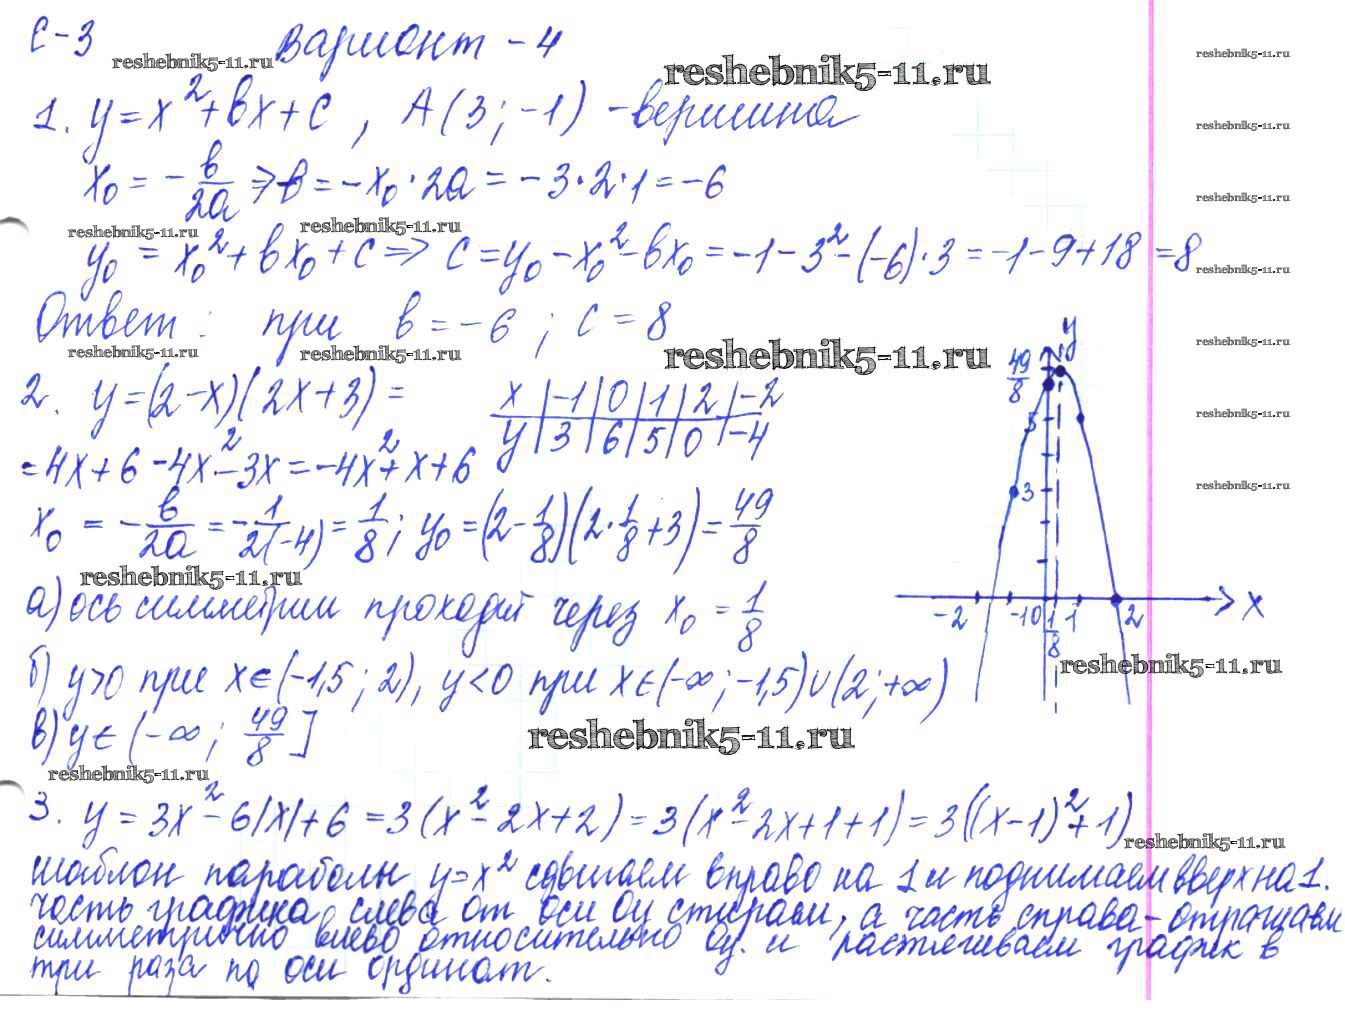 С-3 Вариант - 4
reshebnik5-11.ru reshebnik5-11.ru reshebnik5-11.ru
1. y = x² + bx + c, A(3; -1) - вершина
reshebnik5-11.ru
x₀ = -b/2a => b = -x₀·2a = -3·2·1 = -6
reshebnik5-11.ru
reshebnik5-11.ru reshebnik5-11.ru
y₀ = x₀² + bx₀ + c => c = y₀ - x₀² - bx₀ = -1 - 3² - (-6)·3 = -1 - 9 + 18 = 8
reshebnik5-11.ru
Ответ: при b = -6; c = 8
reshebnik5-11.ru reshebnik5-11.ru reshebnik5-11.ru reshebnik5-11.ru
2. y = (2-x)(2x+3) =
x | -1 | 0 | 1 | 2 | -2
y | 3 | 6 | 5 | 0 | -4
reshebnik5-11.ru
= 4x + 6 - 4x² - 3x = -4x² + x + 6
reshebnik5-11.ru
x₀ = -b/2a = -1/2(-4) = 1/8; y₀ = (2 - 1/8)(2·1/8 + 3) = 49/8
reshebnik5-11.ru
y
49/8
5
3
-2 -1 0 1/8 1 2 x
reshebnik5-11.ru
а) ось симметрии проходит через x₀ = 1/8
б) y>0 при x∈(-1,5; 2), y<0 при x∈(-∞; -1,5)∪(2; +∞)
в) y∈(-∞; 49/8]
reshebnik5-11.ru
reshebnik5-11.ru
3. y = 3x² - 6|x| + 6 = 3(x² - 2x + 2) = 3(x² - 2x + 1 + 1) = 3((x-1)² + 1)
reshebnik5-11.ru
шаблон параболы y=x² сдвигаем вправо на 1 и поднимаем вверх на 1.
часть графика слева от оси Oy стираем, а часть справа - отражаем
симметрично влево относительно Oy. и растягиваем график в
три раза по оси ординат.